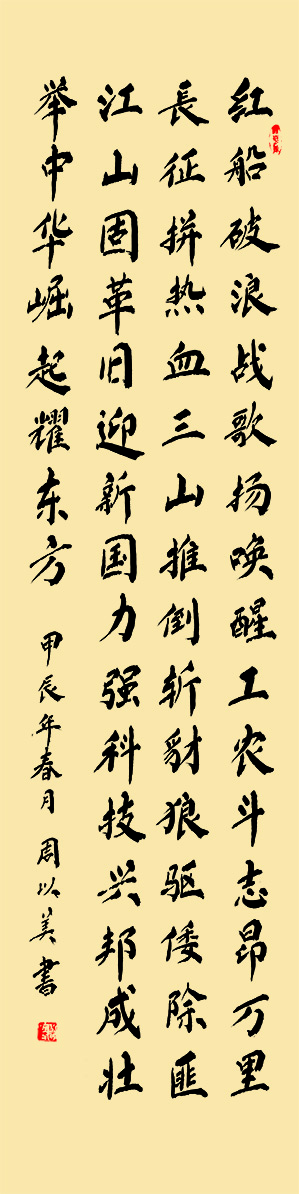 红船破浪战歌扬唤醒工农斗志昂万里
長征拼热血三山推倒斩豺狼驱倭除匪
江山固革旧迎新国力强科技兴邦成壮
举中华崛起耀东方
甲辰年春月 周以美書